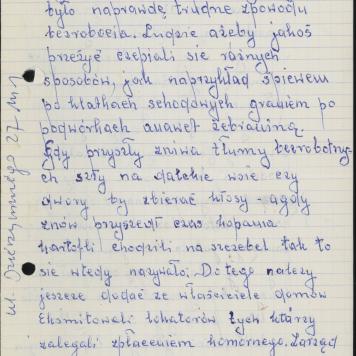 było naprawdę trudne zpowodu
bezrobocia. Ludzie ażeby jakoś
przeżyć czepiali się różnych
sposobów, jak naprzykład śpiewem
po klatkach schodowych graniem po
podwórkach anawet żebraniną.
Gdy przyszły żniwa tłumy bezrobotny-
ch szły na dalekie wsie czy
dwory by zbierać kłosy - a gdy
znów przyszedł czas kopania
kartofli chodzili na szczebel tak to
się wtedy nazywało. Do tego należy
jeszcze dodać że właściciele domów
eksmitowali lokatorów tych którzy
zalegali zpłaceniem komornego. Zarząd
ul. Dzierżyńskiego 27 m 1